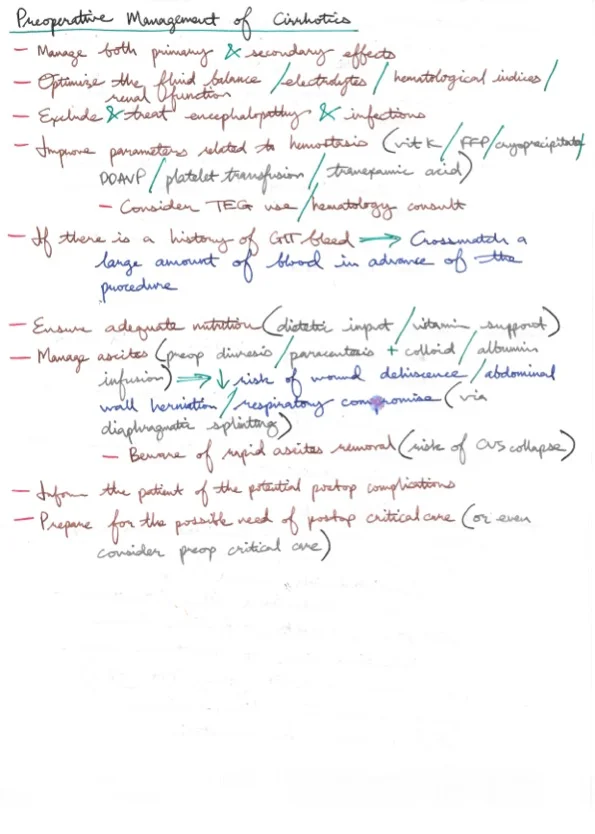 Preoperative Management of Cirrhotics
- Manage both primary & secondary effects
- Optimize the fluid balance / electrolytes / hematological indices /
renal function
- Exclude & treat encephalopathy & infections
- Improve parameters related to hemostasis (vit K / FFP / cryoprecipitate /
DDAVP / platelet transfusion / tranexamic acid)
- Consider TEG use / hematology consult
- If there is a history of GIT bleed → Crossmatch a
large amount of blood in advance of the
procedure
- Ensure adequate nutrition (dietetic input / vitamin support)
- Manage ascites (preop diuresis / paracentesis + colloid / albumin
infusion) → ↓ risk of wound dehiscence / abdominal
wall herniation / respiratory compromise (via
diaphragmatic splinting)
- Beware of rapid ascites removal (risk of CVS collapse)
- Inform the patient of the potential postop complications
- Prepare for the possible need of postop critical care (or even
consider preop critical care)